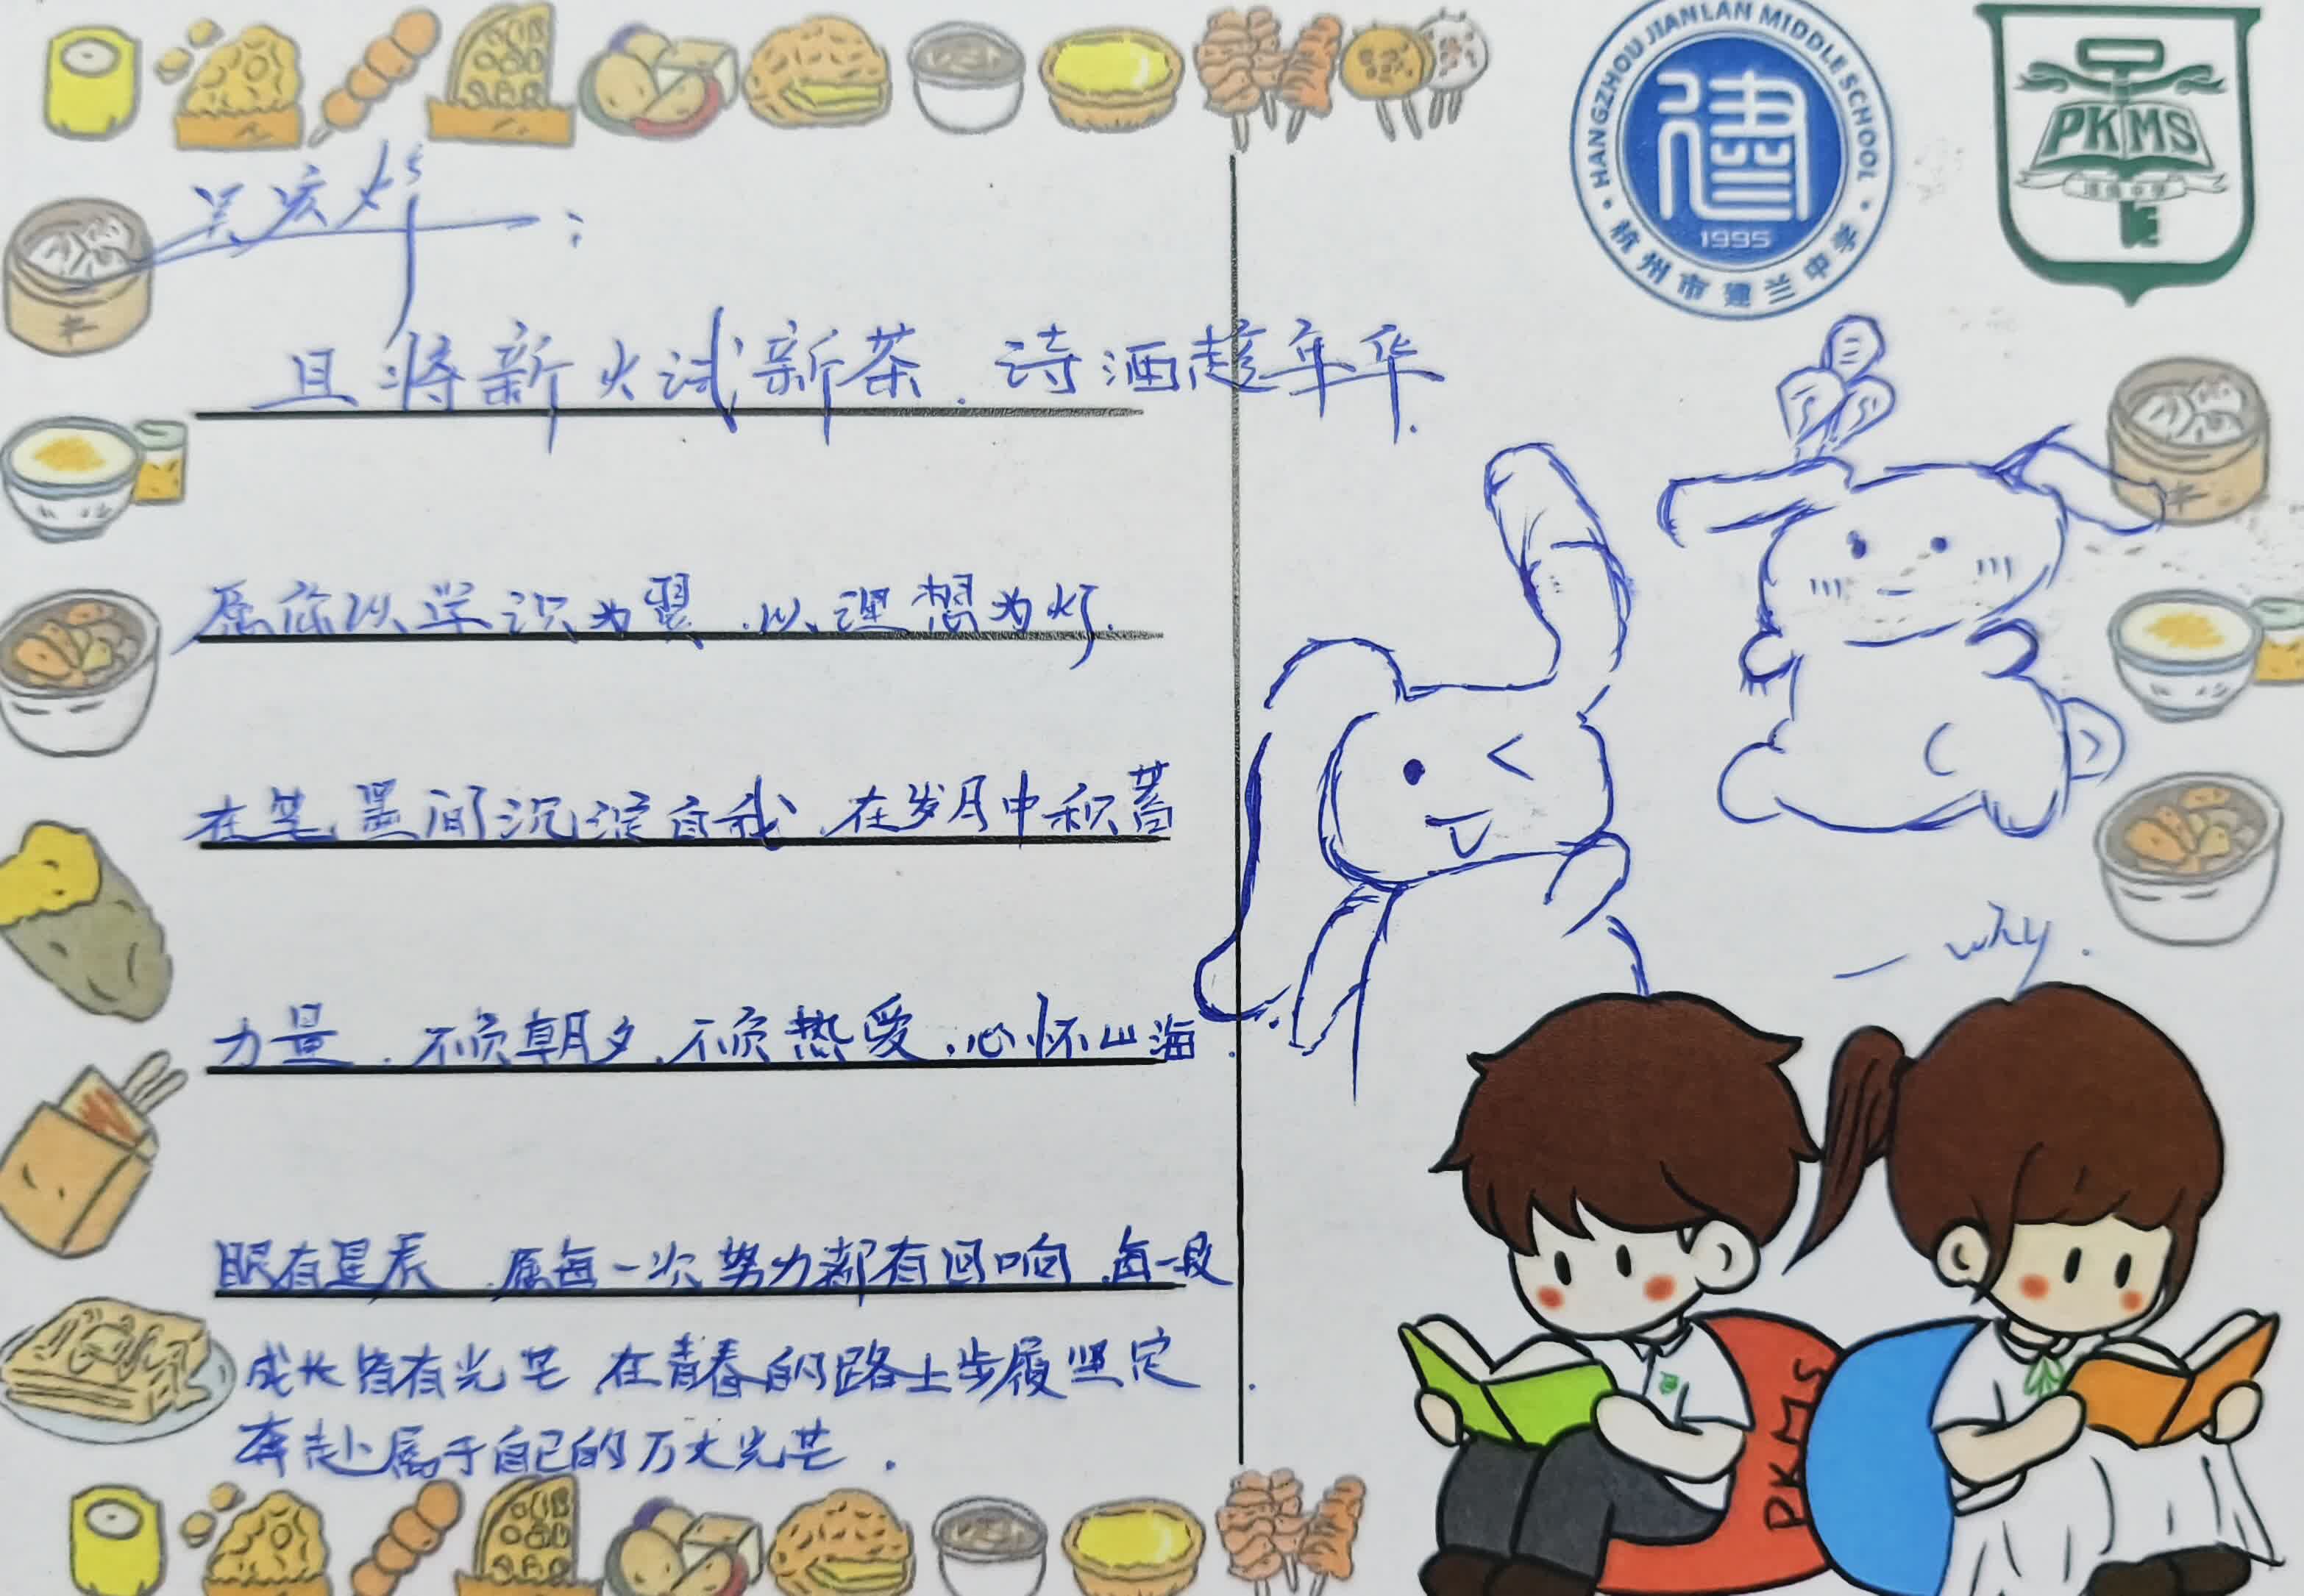 HANGZHOU JIANLAN MIDDLE SCHOOL
建
1995
杭州市建兰中学
PKMS
且将新火试新茶.诗酒趁年华.
愿你以学识为翼.以理想为灯.
在笔墨间沉淀自我.在岁月中积蓄
力量.不负朝夕.不负热爱.心怀山海.
眼有星辰.愿每一次努力都有回响.每一段
成长皆有光芒.在青春的路上步履坚定.
奔赴属于自己的万丈光芒.
— why.
PKMS